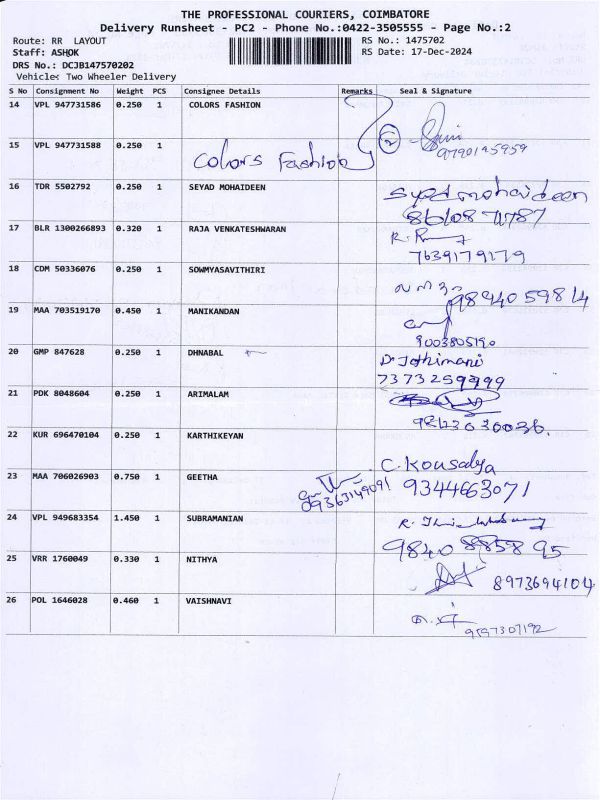 THE PROFESSIONAL COURIERS, COIMBATORE
Delivery Runsheet - PC2 - Phone No.:0422-3505555 - Page No.:2
Route: RR LAYOUT
RS No.: 1475702
Staff: ASHOK
RS Date: 17-Dec-2024
DRS No.: DCJB147570202
Vehicle: Two Wheeler Delivery
S No Consignment No Weight PCS Consignee Details Remarks Seal & Signature
14 VPL 947731586 0.250 1 COLORS FASHION
15 VPL 947731588 0.250 1
Colors Fashion
2
9790195959
16 TDR 5502792 0.250 1 SEYAD MOHAIDEEN
Syed mohaideen
17 BLR 1300266893 0.320 1 RAJA VENKATESHWARAN
7639179179
18 CDM 50336076 0.250 1 SOWMYASAVITHIRI
9894059814
19 MAA 703519170 0.450 1 MANIKANDAN
9003805190
20 GMP 847628 0.250 1 DHNABAL
D. Jothimani
7373259999
21 PDK 8048604 0.250 1 ARIMALAM
22 KUR 696470104 0.250 1 KARTHIKEYAN
23 MAA 706026903 0.750 1 GEETHA
09363149091
C. Kousalya
9344663071
24 VPL 949683354 1.450 1 SUBRAMANIAN
25 VRR 1760049 0.330 1 NITHYA
8973694104
26 POL 1646028 0.460 1 VAISHNAVI
9597307192